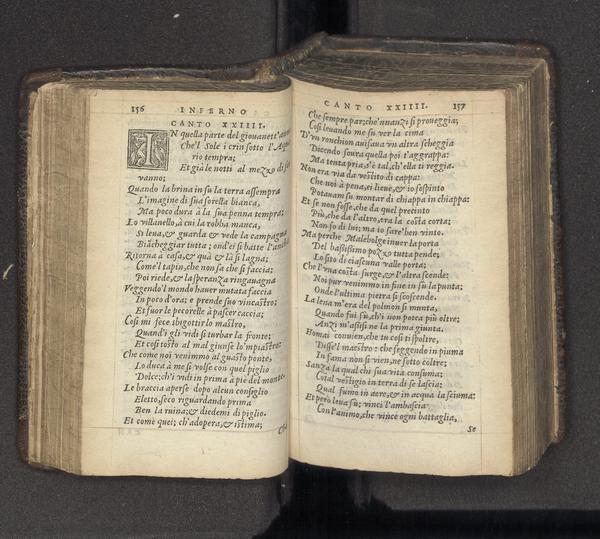 156 INFERNO
CANTO XXIIII.
IN quella parte del giovanett'anno
Che'l Sole i crin sotto l'Aqua
rio tempra;
Et gia le notti al mezzo di sen
vanno;
Quando la brina in su la terra assempra
L'imagine di sua sorella bianca,
Ma poco dura à la sua penna tempra;
Lo villanello, à cui la robba manca,
Si leva, & guarda & vede la campagna
Biācheggiar tutta; ond'ei si batte l'ancha
Ritorna à casa, & quà & là si lagna;
Come'l tapin, che non sa che si faccia:
Poi riede, & la speranza ringavagna
Veggendo'l mondo haver mutata faccia
In poco d'ora; e prende suo vincastro;
Et fuor le pecorelle à pascer caccia;
Cosi mi fece ibigotir lo mastro,
Quand'i gli vidi si turbar la fronte;
Et cosi tosto al mal giunse lo'mpiastro:
Che come noi venimmo al guasto ponte,
Lo duca à me si volse con quel piglio
Dolce; ch'i vidi in prima à piè del monte.
Le braccia aperse dopo alcun consiglio
Eletto, seco riguardando prima
Ben la ruina; & diedemi di piglio.
Et come quei; ch'adopera, & istima;
Che
CANTO XXIIII. 157
Che sempre par; che'nnanzi si proveggia;
Cosi levando me su ver la cima
D'vn ronchion avisava vn altra scheggia
Dicendo sovra quella poi t'aggrappa:
Ma tenta pria, s'è tal, ch'ella ti reggia.
Non era via da vestito di cappa:
Che noi à pena, ei lieve, & io sospinto
Potavam su montar di chiappa in chiappa:
Et se non fosse, che da quel precinto
Più, che da l'altro, era la costa corta;
Non so di lui; ma io sare'ben vinto.
Ma perche Malebolge inver la porta
Del bassissimo pozzo tutta pende;
Lo sito di ciascuna valle porta;
Che l'vna costa surge, & l'altra scende:
Noi pur venimmo in fine in su la punta;
Onde l'ultima pietra si scoscende.
La lena m'era del polmon si munta,
Quando fui su, ch'i non potea più oltre;
Anzi m'asisi ne la prima giunta.
Homai convien, che tu cosi ti spoltre,
Disse'l maestro: che seggendo in piuma
In fama non si vien, ne sotto coltre;
Sanza la qual chi sua vita consuma;
Cotal vestigio in terra di se lascia;
Qual fumo in aere, & in acqua la sciuma:
Et però leva su; vinci l'ambascia
Con l'animo, che vince ogni battaglia,
Se